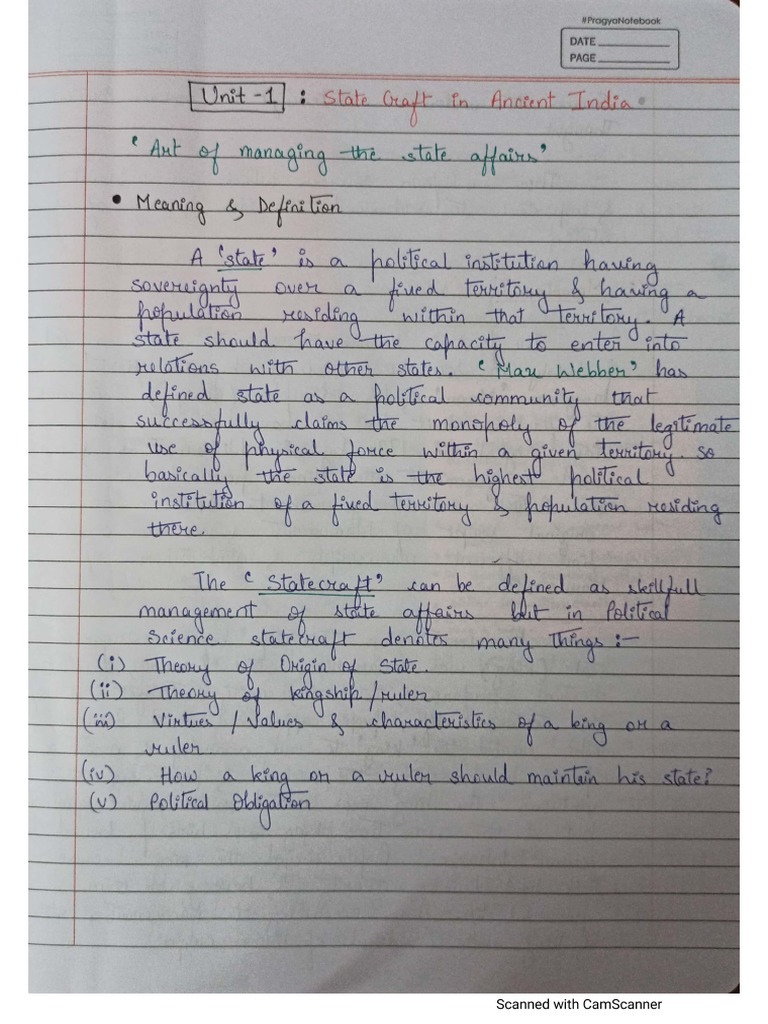 #PragyaNotebook
DATE
PAGE
Unit-1 : State Craft in Ancient India.
'Art of managing the state affairs'
• Meaning & Definition
A 'state' is a political institution having
sovereignty over a fixed territory & having a
population residing within that territory. A
state should have the capacity to enter into
relations with other states. 'Max Webber' has
defined state as a political community that
successfully claims the monopoly of the legitimate
use of physical force within a given territory. so
basically the state is the highest political
institution of a fixed territory & population residing
there.
The 'Statecraft' can be defined as skillfull
management of state affairs but in Political
Science statecraft denotes many things :-
(i) Theory of Origin of State.
(ii) Theory of kingship/ruler
(iii) Virtues/Values & characteristics of a king or a
ruler.
(iv) How a king or a ruler should maintain his state?
(v) Political Obligation
Scanned with CamScanner